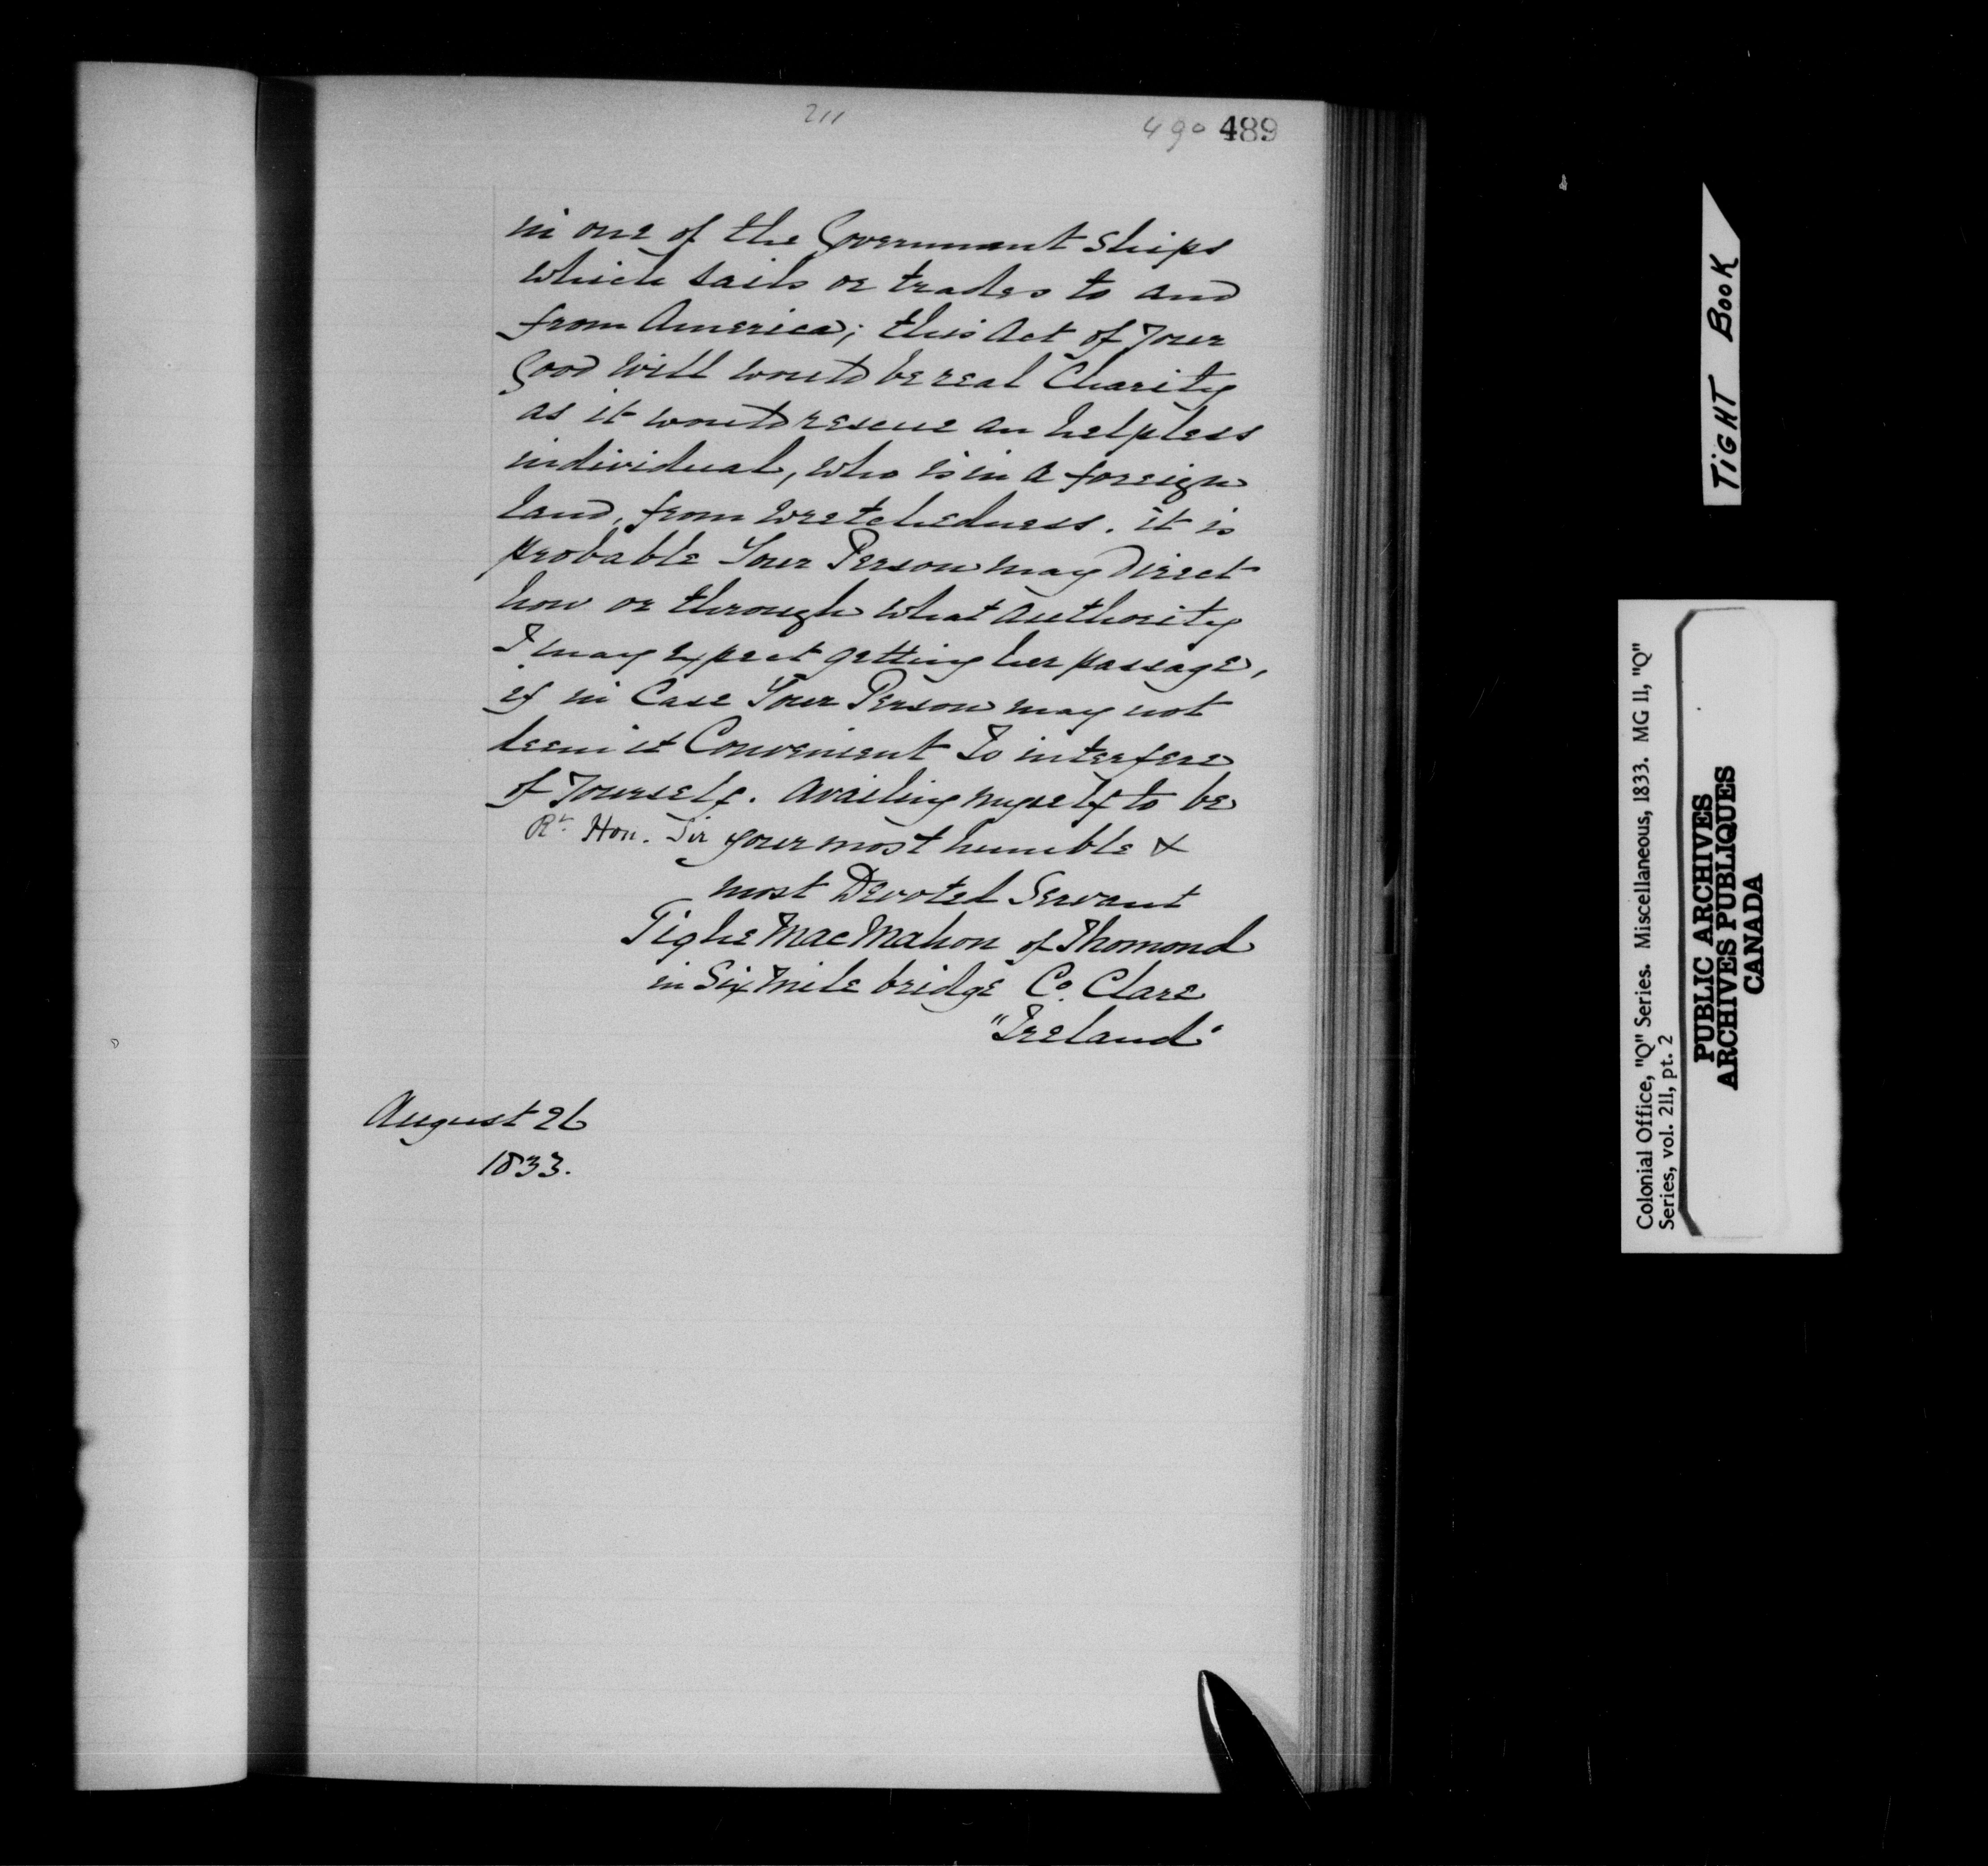 211
490 489
in one of the Government Ships
which sails or trades to and
from America; this Act of Your
Good Will would be real Charity
as it would rescue an helpless
individual, who is in a foreign
land, from wretchedness. it is
probable Your Person may Direct
how or through what authority
I may expect getting her passage,
if in Case Your Person may not
deem it Convenient To interfere
of Yourself. Availing myself to be
Rt. Hon. Sir your most humble &
most Devoted Servant
Tighe MacMahon of Thomond
in Six mile bridge Co. Clare
"Ireland"
August 26
1833.
TIGHT BOOK
Colonial Office, "Q" Series. Miscellaneous, 1833. MG 11, "Q"
Series, vol. 211, pt. 2
PUBLIC ARCHIVES
ARCHIVES PUBLIQUES
CANADA